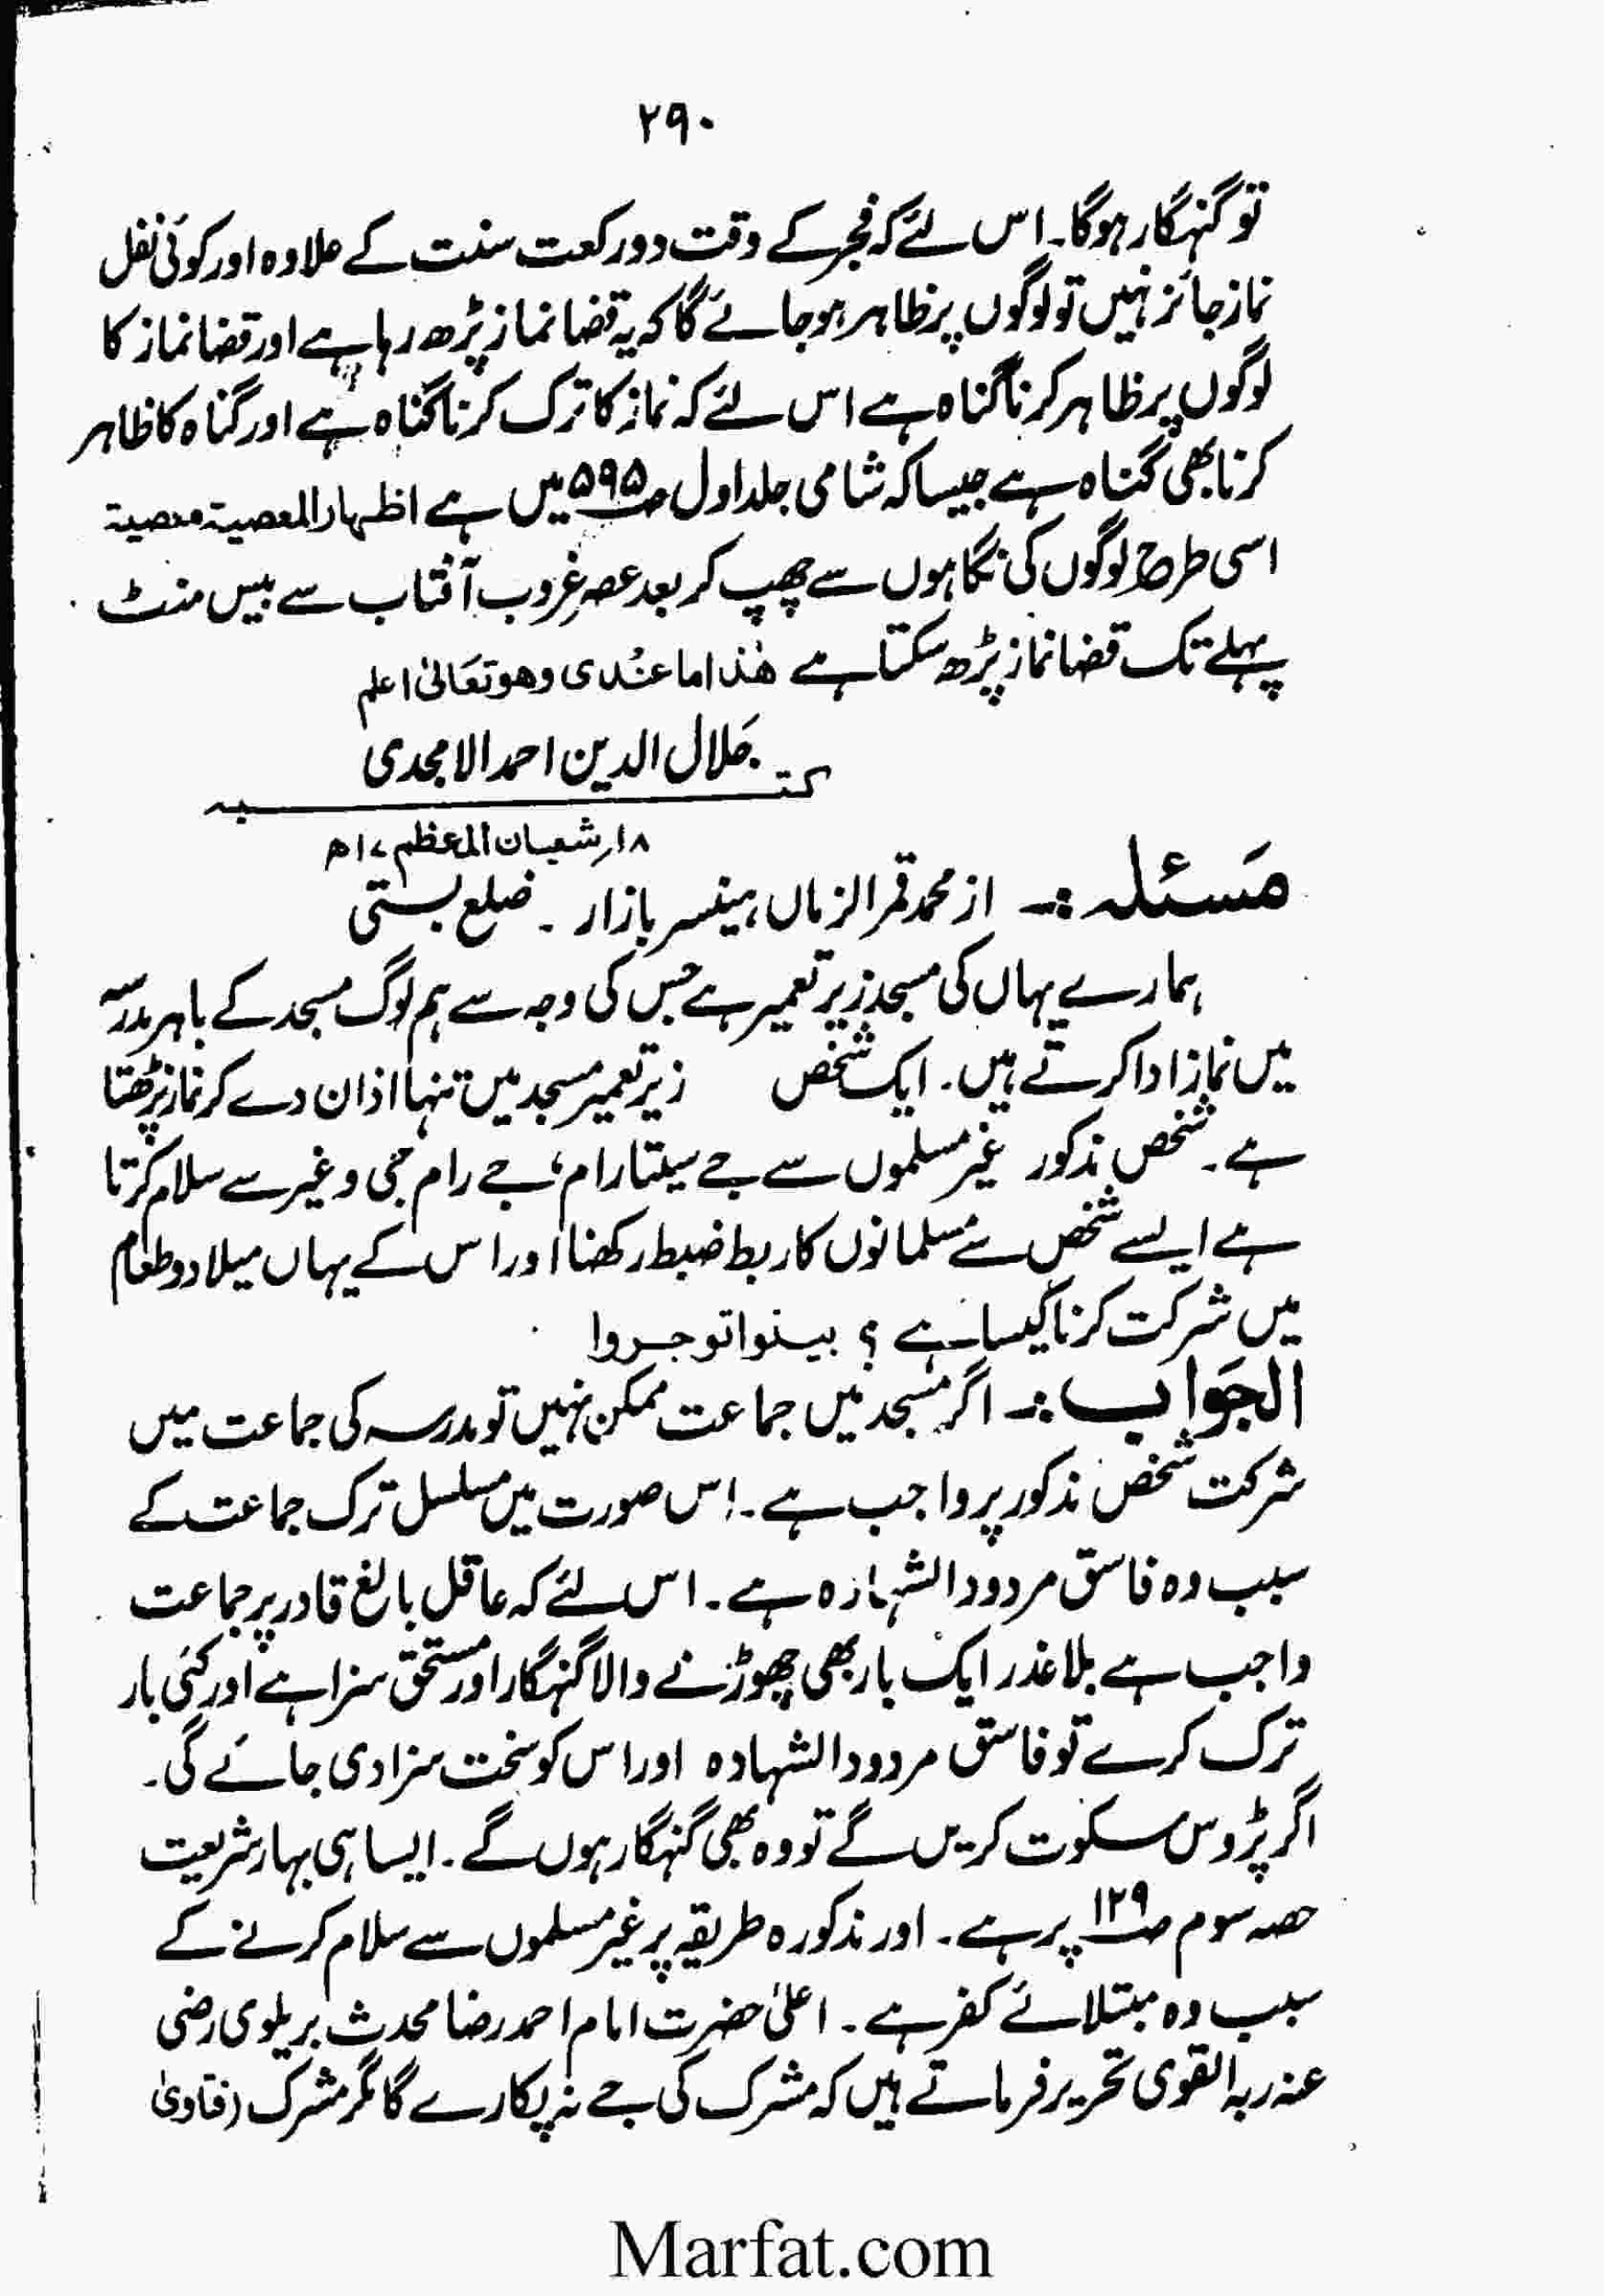 ۲۹۰
تو گنہگار ہوگا۔ اس لئے کہ فجر کے وقت دو رکعت سنت کے علاوہ اور کوئی نفل
نماز جائز نہیں تو لوگوں پر ظاہر ہو جائے گا کہ یہ قضا نماز پڑھ رہا ہے اور قضا نماز کا
لوگوں پر ظاہر کرنا گناہ ہے اس لئے کہ نماز کا ترک کرنا گناہ ہے اور گناہ کا ظاہر
کرنا بھی گناہ ہے جیسا کہ شامی جلد اول ص۵۹۵ میں ہے اظہار المعصیۃ معصیۃ
اسی طرح لوگوں کی نگاہوں سے چھپ کر بعد عصر غروب آفتاب سے بیس منٹ
پہلے تک قضا نماز پڑھ سکتا ہے ھٰذا ما عندی وھو تعالیٰ اعلم
جلال الدین احمد الامجدی
کتبہ
۱۸ر شعبان المعظم ۱۷ھ
مسئلہ :۔ از محمد قمر الزماں، ہینسر بازار ۔ ضلع بستی
ہمارے یہاں کی مسجد زیر تعمیر ہے جس کی وجہ سے ہم لوگ مسجد کے باہر مدرسہ
میں نماز ادا کرتے ہیں۔ ایک شخص زیر تعمیر مسجد میں تنہا اذان دے کر نماز پڑھتا
ہے۔ شخص مذکور غیر مسلموں سے جے سیتا رام، جے رام جی وغیرہ سے سلام کرتا
ہے ایسے شخص سے مسلمانوں کا ربط ضبط رکھنا اور اس کے یہاں میلاد و طعام
میں شرکت کرنا کیسا ہے ؟ بینوا توجروا
الجواب :۔ اگر مسجد میں جماعت ممکن نہیں تو مدرسہ کی جماعت میں
شرکت شخص مذکور پر واجب ہے۔ اس صورت میں مسلسل ترک جماعت کے
سبب وہ فاسق مردود الشہادہ ہے۔ اس لئے کہ عاقل بالغ قادر پر جماعت
واجب ہے بلا عذر ایک بار بھی چھوڑنے والا گنہگار اور مستحق سزا ہے اور کئی بار
ترک کرے تو فاسق مردود الشہادہ اور اس کو سخت سزا دی جائے گی۔
اگر پڑوس سکوت کریں گے تو وہ بھی گنہگار ہوں گے۔ ایسا ہی بہار شریعت
حصہ سوم ص۱۲۹ پر ہے۔ اور مذکورہ طریقہ پر غیر مسلموں سے سلام کرنے کے
سبب وہ مبتلائے کفر ہے۔ اعلیٰ حضرت امام احمد رضا محدث بریلوی رضی
عنہ ربہ القوی تحریر فرماتے ہیں کہ مشرک کی جے نہ پکارے گا مگر مشرک (فتاویٰ
Marfat.com